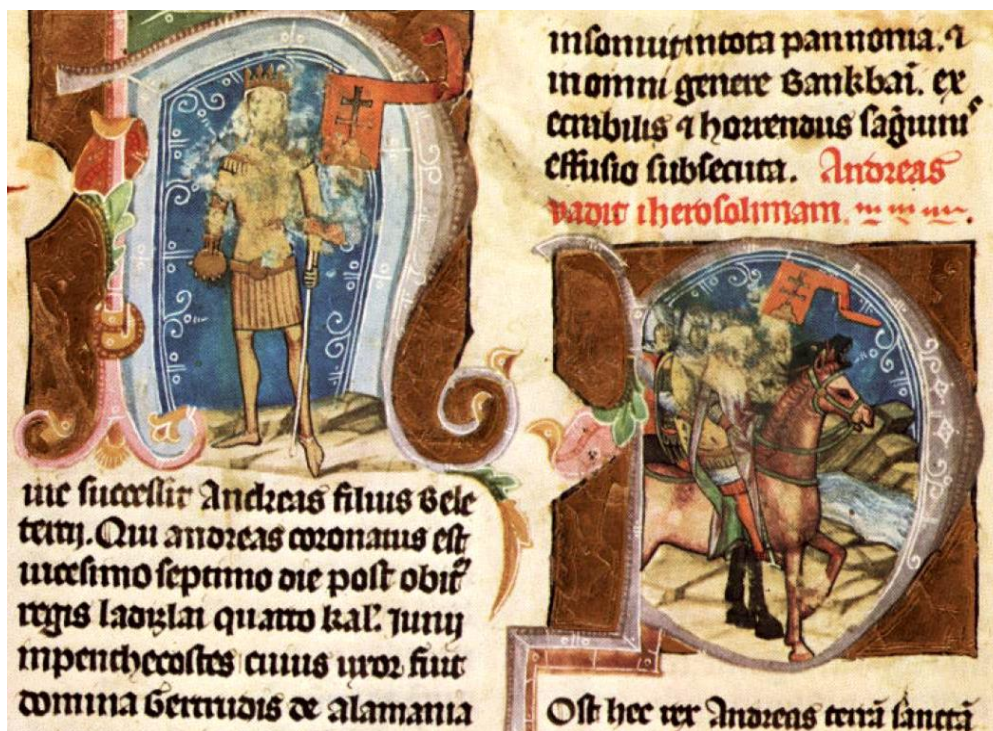 Huic successit Andreas filius Bele
tercij. Qui andreas coronatus est
uicesimo septimo die post obit᷒
regis ladizlai quarto kal'. Junij
inpenthecostes cuius uxor fuit
domina Gertrudis de alamania
insonuit intota pannonia. ⁊
in omni genere Bankbāi. ex
ecrabilis ⁊ horrendus sāguinis
effusio subsecuta. Andreas
vadit iherosolimam.
POst hec rex Andreas terrā sanctā